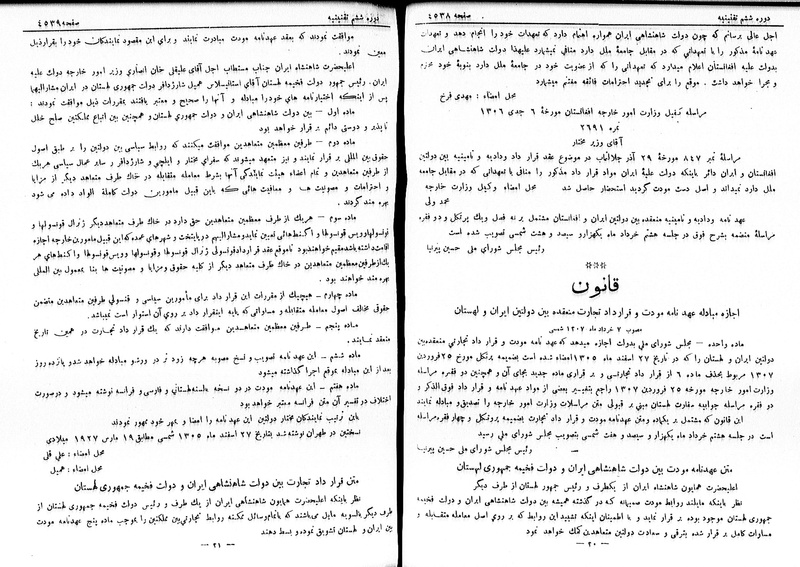 دوره ششم تقنینیه
صفحه ۴۵۳۸
اجل عالی برسانم که چون دولت شاهنشاهی ایران همواره اهتمام دارد که تعهدات خود را انجام دهد و تعهدات
عهد نامهٔ مذکور را با تعهداتی که در مقابل جامعهٔ ملل دارد منافی نمیشمارد علیهذا دولت شاهنشاهی ایران
بدولت علیه افغانستان اعلام میدارد که تعهداتی را که از عضویت خود در جامعهٔ ملل دارد بنوبهٔ خود محترم
و مجرا خواهد داشت . موقع را برای تجدید احترامات فائقه مغتنم میشمارد
محل امضاء : مهدی فرخ
مراسله کفیل وزارت امور خارجه افغانستان مورخهٔ ۶ جدی ۱۳۰۶
نمره ۲۶۹۱
آقای وزیر مختار
مراسلهٔ نمبر ۸۴۷ مورخهٔ ۲۹ آذر جلالتماب در موضوع عقد قرار داد ودادیه و تامینیه بین دولتین
افغانستان و ایران دائر باینکه دولت علیهٔ ایران مواد قرار داد مذکور را منافی با تعهداتی که در مقابل جامعه
ملل دارد نمیداند و اصل دست مودت گردید استحضار حاصل شد محل امضاء وکیل وزارت خارجه
محمد ولی
عهد نامه ودادیه و تامینیه منعقده بین دولتین ایران و افغانستان مشتمل بر نه فصل ویک پرتکل و دو فقره
مراسلهٔ منضمه بشرح فوق در جلسه هشتم خرداد ماه یکهزارو سیصد و هفت شمسی تصویب شده است
رئیس مجلس شورای ملی حسین پیرنیا
***
قانون
اجازه مبادله عهد نامه مودت و قرارداد تجارت منعقده بین دولتین ایران و لهستان
مصوب ۷ خرداد ماه ۱۳۰۷ شمسی
ماده واحده – مجلس شورای ملی بدولت اجازه میدهد که عهد نامه مودت و قرار داد تجارتی منعقده بین
دولتین ایران و لهستان را که در تاریخ ۲۷ اسفند ماه ۱۳۰۵ امضاء شده است بضمیمه پرتکل مورخ ۲۵ فروردین
۱۳۰۷ مربوط بحذف ماده ۶ از قرار داد تجارتی و برقراری ماده جدید بجای آن و همچنین دو فقره مراسله
وزارت امور خارجه مورخه ۲۵ فروردین ۱۳۰۷ راجع بتفسیر بعضی از مواد عهد نامه و قرار داد فوق الذکر و
دو فقره مراسله جوابیه سفارت لهستان مبنی بر قبولی متن مراسلات وزارت امور خارجه را تصدیق و مبادله نمایند
این قانون که مشتمل بر یکماده و متن عهدنامه مودت و قرار داد تجارت بضمیمه پروتکل و چهار فقره مراسله
است در جلسه هشتم خرداد ماه یکهزار و سیصد و هفت شمسی بتصویب مجلس شورای ملی رسید
رئیس مجلس شورای ملی حسین پیرنیا
متن عهدنامه مودت بین دولت شاهنشاهی ایران و دولت فخیمه جمهوری لهستان
اعلیحضرت همایون شاهنشاه ایران از یکطرف و رئیس جمهور لهستان از طرف دیگر
نظر باینکه مایلند روابط مودت صمیمانه که در گذشته همیشه بین دولت شاهنشاهی ایران و دولت فخیمه
جمهوری لهستان موجود بوده بر قرار نماید و با اطمینان اینکه تشیید این روابط که بر روی اصل معامله متقابله و
مساوات کامل بر قرار شده بترقی و سعادت دولتین متعاهدین کمک خواهد نمود
– ۲۰ –
دوره ششم تقنینیه
صفحه ۴۵۳۹
موافقت نمودند که بعقد عهدنامه مودت مبادرت نمایند و برای این مقصود نمایندگان خود را بقرارذیل
معین نمودند .
اعلیحضرت شاهنشاه ایران جناب مستطاب اجل آقای علیقلی خان انصاری وزیر امور خارجه دولت علیه
ایران . رئیس جمهور دولت فخیمه لهستان آقای استانیسلاس همپل شارژدافر دولت جمهوری لهستان در ایران مشارالیهما
پس از اینکه اختیارنامه های خودرا مبادله و آنها را صحیح و معتبر یافتند بمقررات ذیل موافقت نمودند :
ماده اول – بین دولت شاهنشاهی ایران و دولت جمهوری لهستان و همچنین بین اتباع مملکتین صلح خلل
ناپذیر و دوستی دائم بر قرار خواهد بود
ماده دوم – طرفین معظمین متعاهدین موافقت میکنند که روابط سیاسی بین دولتین را بر طبق اصول
حقوق بین المللی بر قرار نمایند و نیز متعهد میشوند که سفرای مختار و ایلچی و شارژدافر و سایر عمال سیاسی هریک
از طرفین متعاهدین و تمام اعضاء هیئت نمایندگی آنها بشرط معامله متقابله در خاک طرف متعاهد دیگر از مزایا
و احترامات و مصونیت ها و معافیت هائی که باین قبیل مامورین دولت کاملة الوداد داده می شود
بهره مند گردند .
ماده سوم – هریک از طرفین معظمین متعاهدین حق دارد در خاک طرف متعاهد دیگر ژنرال قونسولها و
قونسولها و ویس قونسولها و آکنط هائی تعیین نماید و مشارالیهم در پایتخت و شهرهای عمده که این قبیل مامورین خارجه اجازه
اقامت داشته باشند مقیم خواهند بود تا موقع عقد قرارداد قونسولی ژنرال قونسولها و قونسولها و ویس قونسولها و آکنط های هر
یک از طرفین معظمین متعاهدین در خاک طرف متعاهد دیگر از کلیه حقوق و مزایا و مصونیت ها بنا بمعمول بین المللی
بهره مند خواهند بود .
ماده چهارم – هیچیک از مقررات این قرار داد برای مأمورین سیاسی و قنسولی طرفین متعاهدین متضمن
حقوقی مخالف اصول معامله متقابله و مساواتی که پایه اینقرار داد بر روی آن استوار است نمیباشد .
ماده پنجم – طرفین معظمین متعاهدین موافقت دارند که یک قرار داد تجارت در همین تاریخ
منعقد نمایند .
ماده ششم – این عهدنامه تصویب و نسخ مصوبه هرچه زود تر در ورشو مبادله خواهد شد و پانزده روز
بعد از این مبادله بموقع اجرا گذاشته میشود
ماده هفتم – این عهدنامه مودت در دو نسخه بلهستانی و فارسی و فرانسه نوشته میشود و درصورت
اختلاف در تفسیر آن متن فرانسه معتبر خواهد بود
باین ترتیب نمایندگان مختار دولتین این عهد نامه را امضا و بمهر خود ممهور نمودند
نسختین در طهران نوشته شد بتاریخ ۲۷ اسفند ماه ۱۳۰۵ شمسی مطابق ۱۹ مارس ۱۹۲۷ میلادی
محل امضاء : علی قلی
محل امضاء : همپل
متن قرار داد تجارت بین دولت شاهنشاهی ایران و دولت فخیمه جمهوری لهستان
نظر باینکه اعلیحضرت همایون شاهنشاه ایران از یک طرف و رئیس دولت فخیمه جمهوری لهستان از
طرف دیگر بالسویه مایل میباشند که بتمام وسائل ممکنه روابط تجارتی بین مملکتین را بموجب ماده پنج عهدنامه مودت
بین ایران و لهستان تشویق نموده و بسط دهند
– ۲۱ –